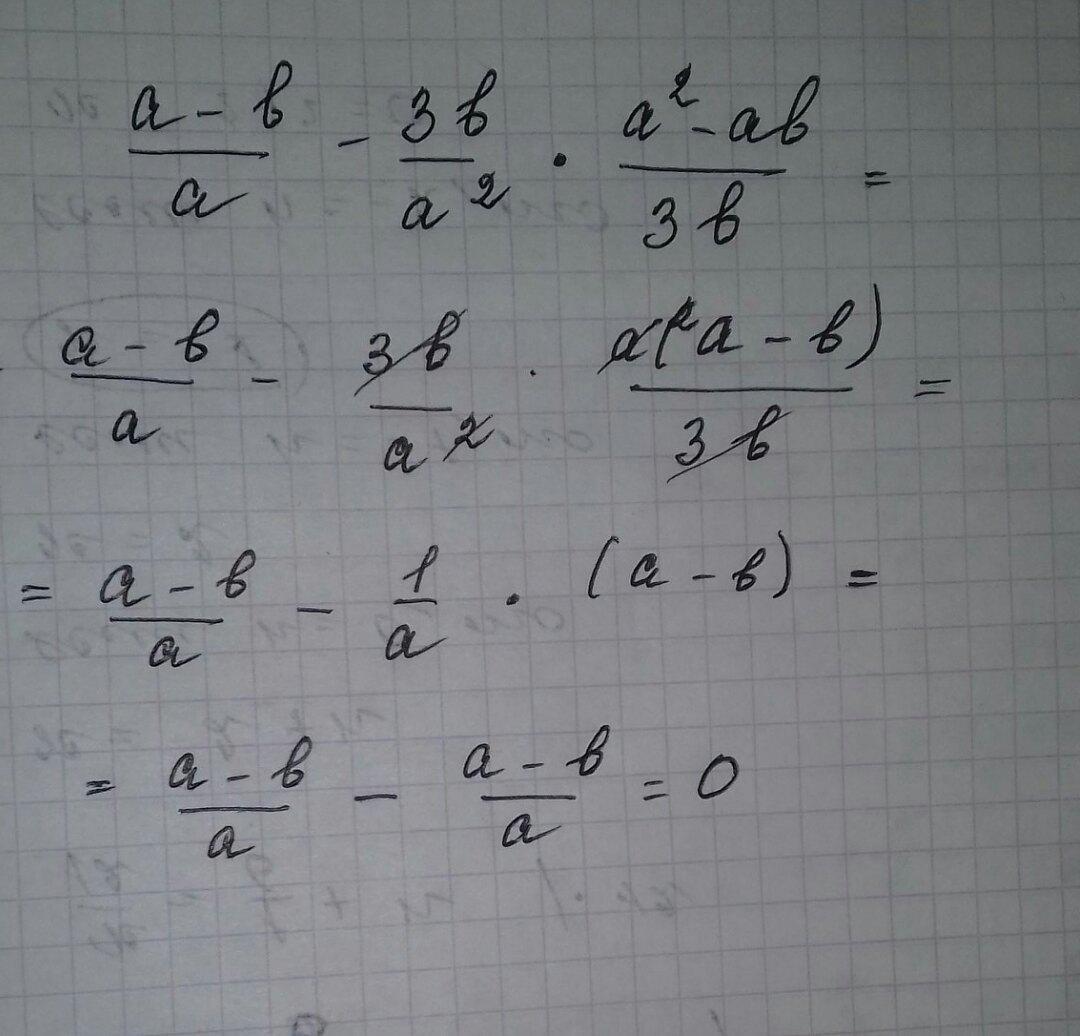 a - b/a - 3b/a² · a² - ab/3b =
a - b/a - 3b/a² · a(a - b)/3b =
= a - b/a - 1/a · (a - b) =
= a - b/a - a - b/a = 0